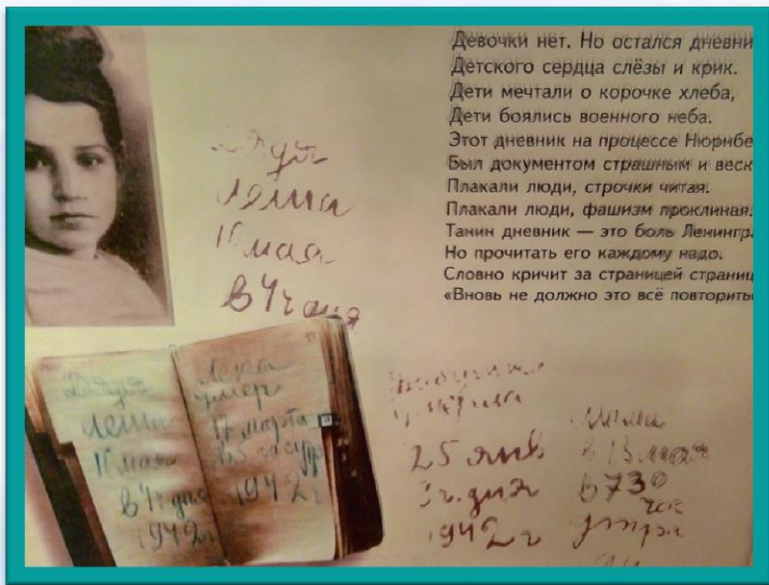 Девочки нет. Но остался дневни
Детского сердца слёзы и крик.
Дети мечтали о корочке хлеба,
Дети боялись военного неба.
Этот дневник на процессе Нюрнбе
Был документом страшным и веск
Плакали люди, строчки читая.
Плакали люди, фашизм проклиная.
Танин дневник — это боль Ленингра
Но прочитать его каждому надо.
Словно кричит за страницей страниц
«Вновь не должно это всё повторить
Дядя
Леша
10 мая
в 4 ч дня
Дядя
Леша
10 мая
в 4 ч дня
1942 г
Лека
умер
17 марта
в 5 час утр
1942 г
Бабушка
умерла
25 янв
3 ч. дня
1942 г
Мама
в 13 мая
в 730
час
утра